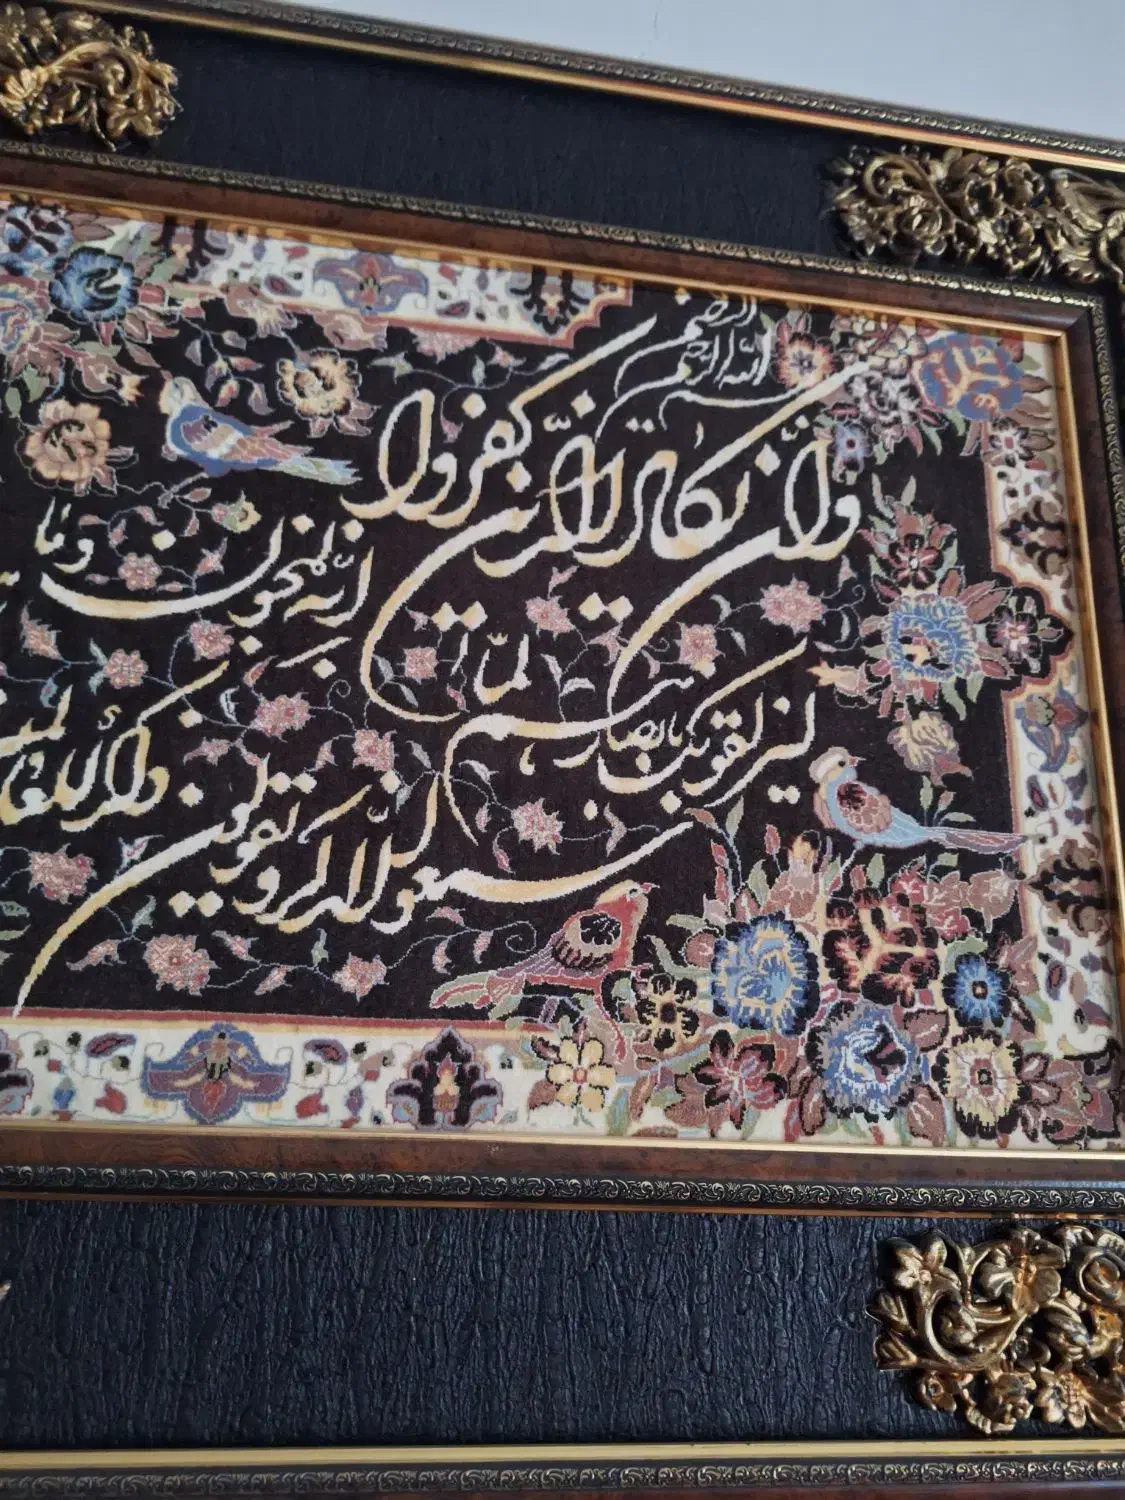 الله الرحمن الرحیم
وان یکاد الذین کفروا
لیزلقونک بابصارهم لما
سمعوا الذکر و یقولون
انه لمجنون و ما
ذکر للعالمین